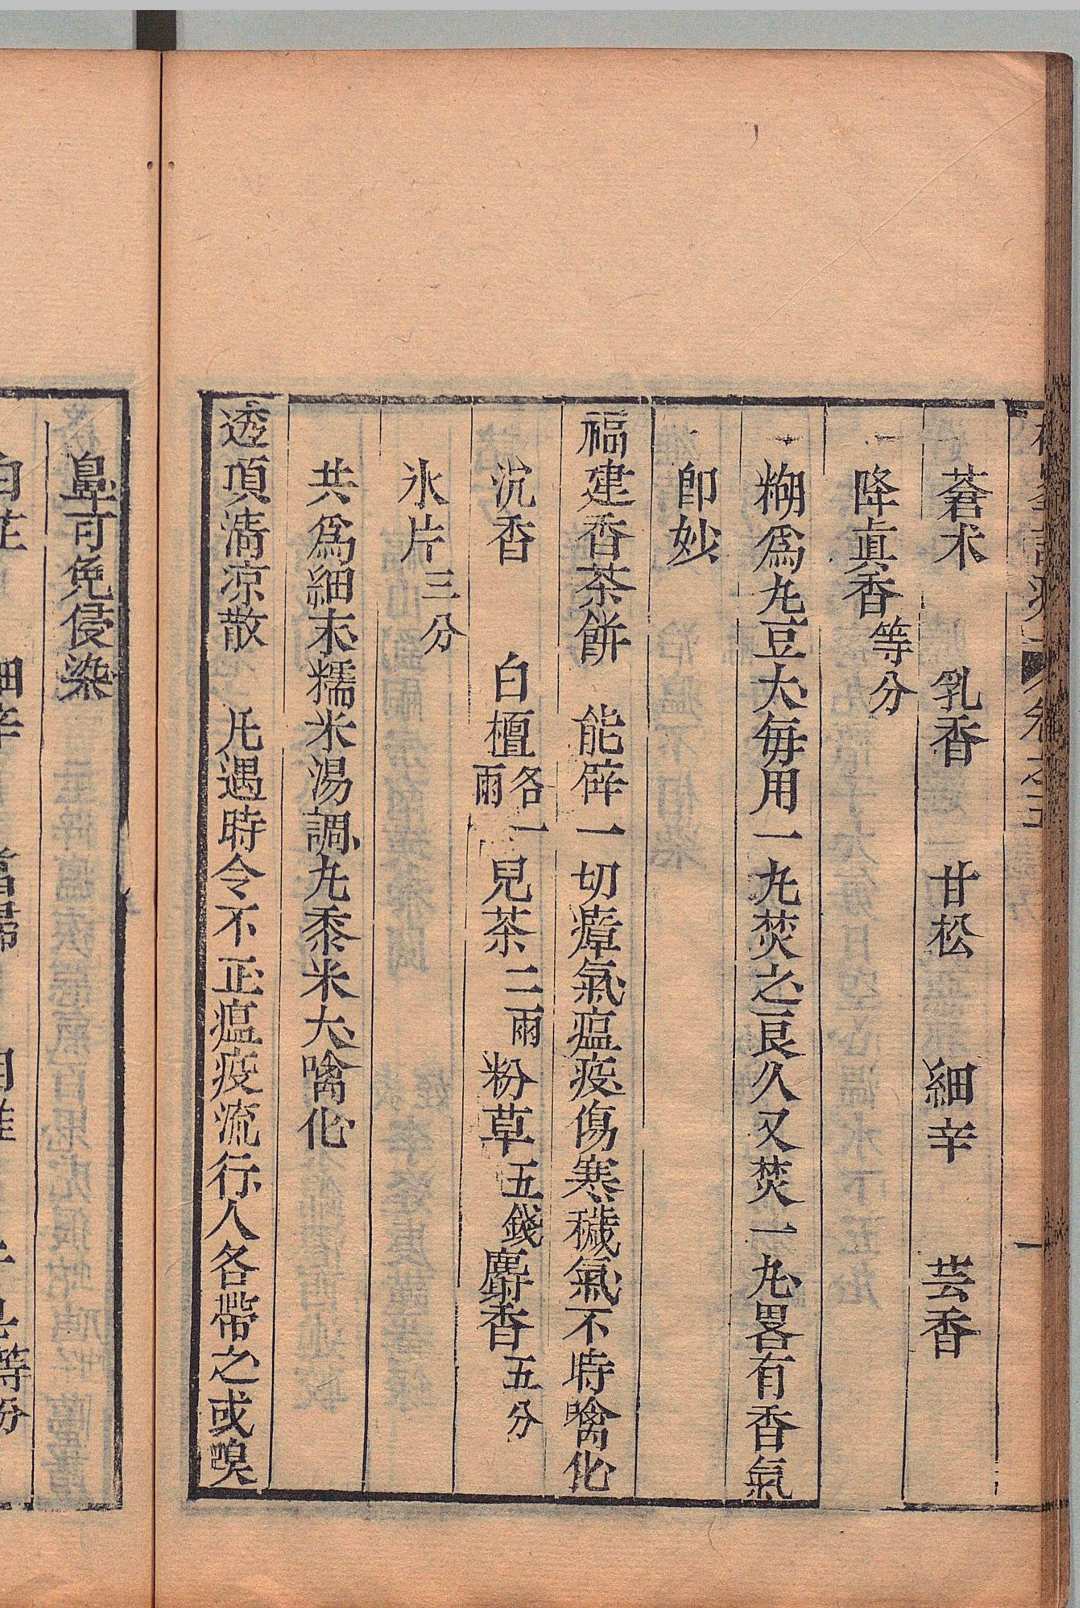 蒼朮　乳香　甘松　細辛　芸香
降眞香等分
糊爲丸豆大每用一丸焚之良久又焚一丸畧有香氣
卽妙
福建香茶餅　能辟一切瘴氣瘟疫傷寒穢氣不時噙化
沉香　白檀各一兩　兒茶二兩　粉草五錢　麝香五分
氷片三分
共爲細末糯米湯調丸黍米大噙化
透項清凉散　凡遇時令不正瘟疫流行人各帶之或嗅
鼻可免侵染